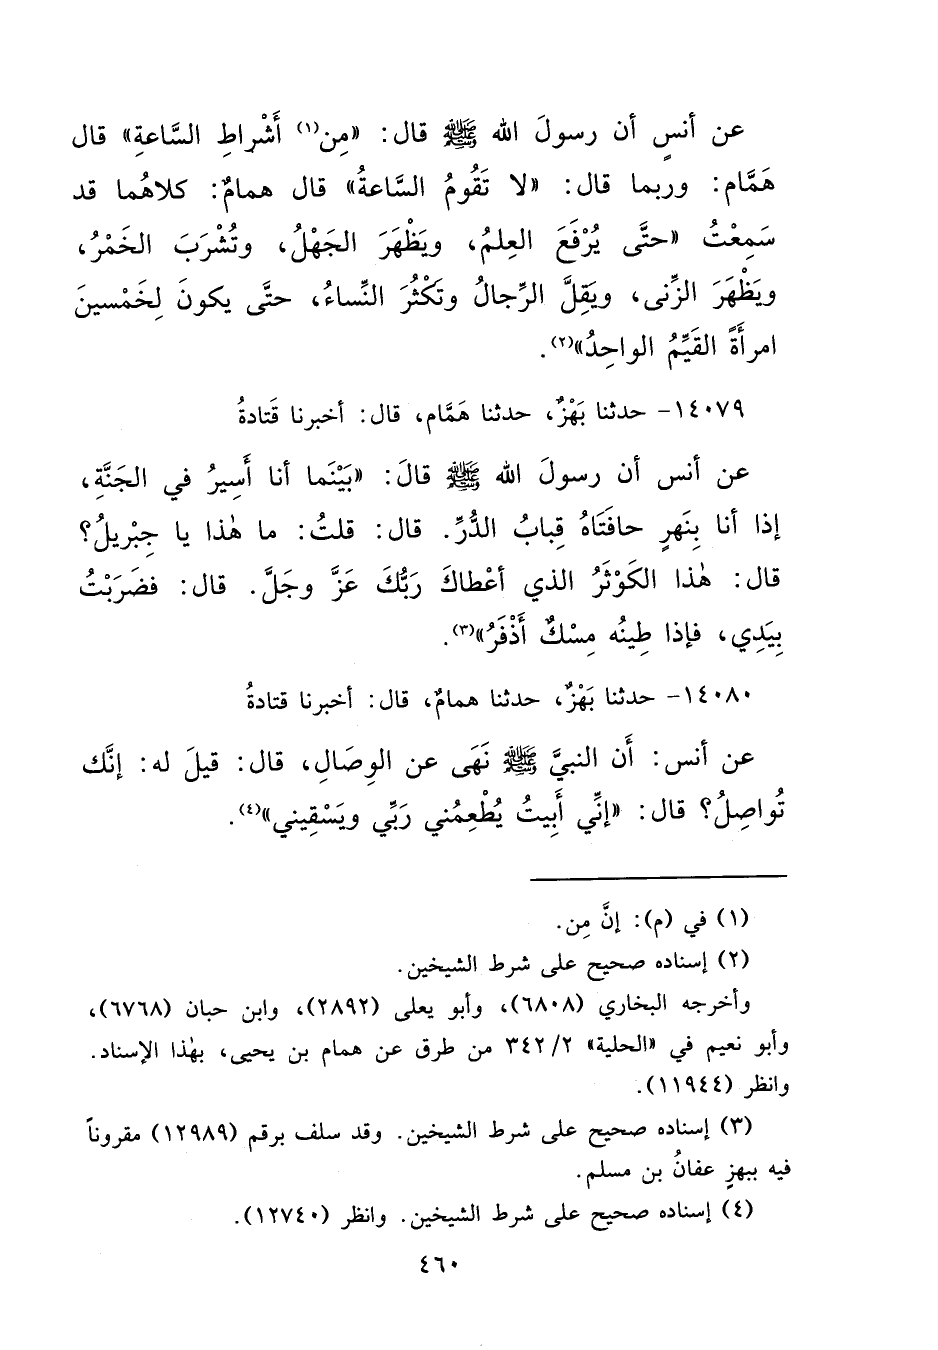 عن أنسٍ أن رسولَ الله ﷺ قال: «مِن(١) أَشْراطِ السَّاعةِ» قال
هَمَّام: وربما قال: «لا تَقُومُ السَّاعةُ» قال همامٌ: كلاهُما قد
سَمِعْتُ «حتَّى يُرْفَعَ العِلمُ، ويَظْهَرَ الجَهْلُ، وتُشْرَبَ الخَمْرُ،
ويَظْهَرَ الزِّنى، ويَقِلَّ الرِّجالُ وتَكْثُرَ النِّساءُ، حتَّى يكونَ لِخَمْسينَ
امرأَةً القَيِّمُ الواحِدُ»(٢).
١٤٠٧٩- حدثنا بَهْزٌ، حدثنا هَمَّام، قال: أخبرنا قَتادةُ
عن أنس أن رسولَ الله ﷺ قالَ: «بَيْنَما أنا أَسِيرُ في الجَنَّةِ،
إذا أنا بِنَهرٍ حافَتَاهُ قِبابُ الدُّرِّ. قال: قلتُ: ما هٰذا يا جِبْريلُ؟
قال: هٰذا الكَوْثَرُ الذي أعْطاكَ رَبُّكَ عَزَّ وجَلَّ. قال: فضَرَبْتُ
بِيَدِي، فإذا طِينُه مِسْكٌ أَذْفَرُ»(٣).
١٤٠٨٠- حدثنا بَهْزٌ، حدثنا همامٌ، قال: أخبرنا قتادةُ
عن أنس: أَن النبيَّ ﷺ نَهَى عن الوِصَالِ، قال: قيلَ له: إنَّك
تُواصِلُ؟ قال: «إنِّي أَبِيتُ يُطْعِمُني رَبِّي ويَسْقِيني»(٤).
(١) في (م): إنَّ مِن.
(٢) إسناده صحيح على شرط الشيخين.
وأخرجه البخاري (٦٨٠٨)، وأبو يعلى (٢٨٩٢)، وابن حبان (٦٧٦٨)،
وأبو نعيم في «الحلية» ٣٤٢/٢ من طرق عن همام بن يحيى، بهٰذا الإسناد.
وانظر (١١٩٤٤).
(٣) إسناده صحيح على شرط الشيخين. وقد سلف برقم (١٢٩٨٩) مقروناً
فيه ببهزٍ عفانُ بن مسلم.
(٤) إسناده صحيح على شرط الشيخين. وانظر (١٢٧٤٠).
٤٦٠